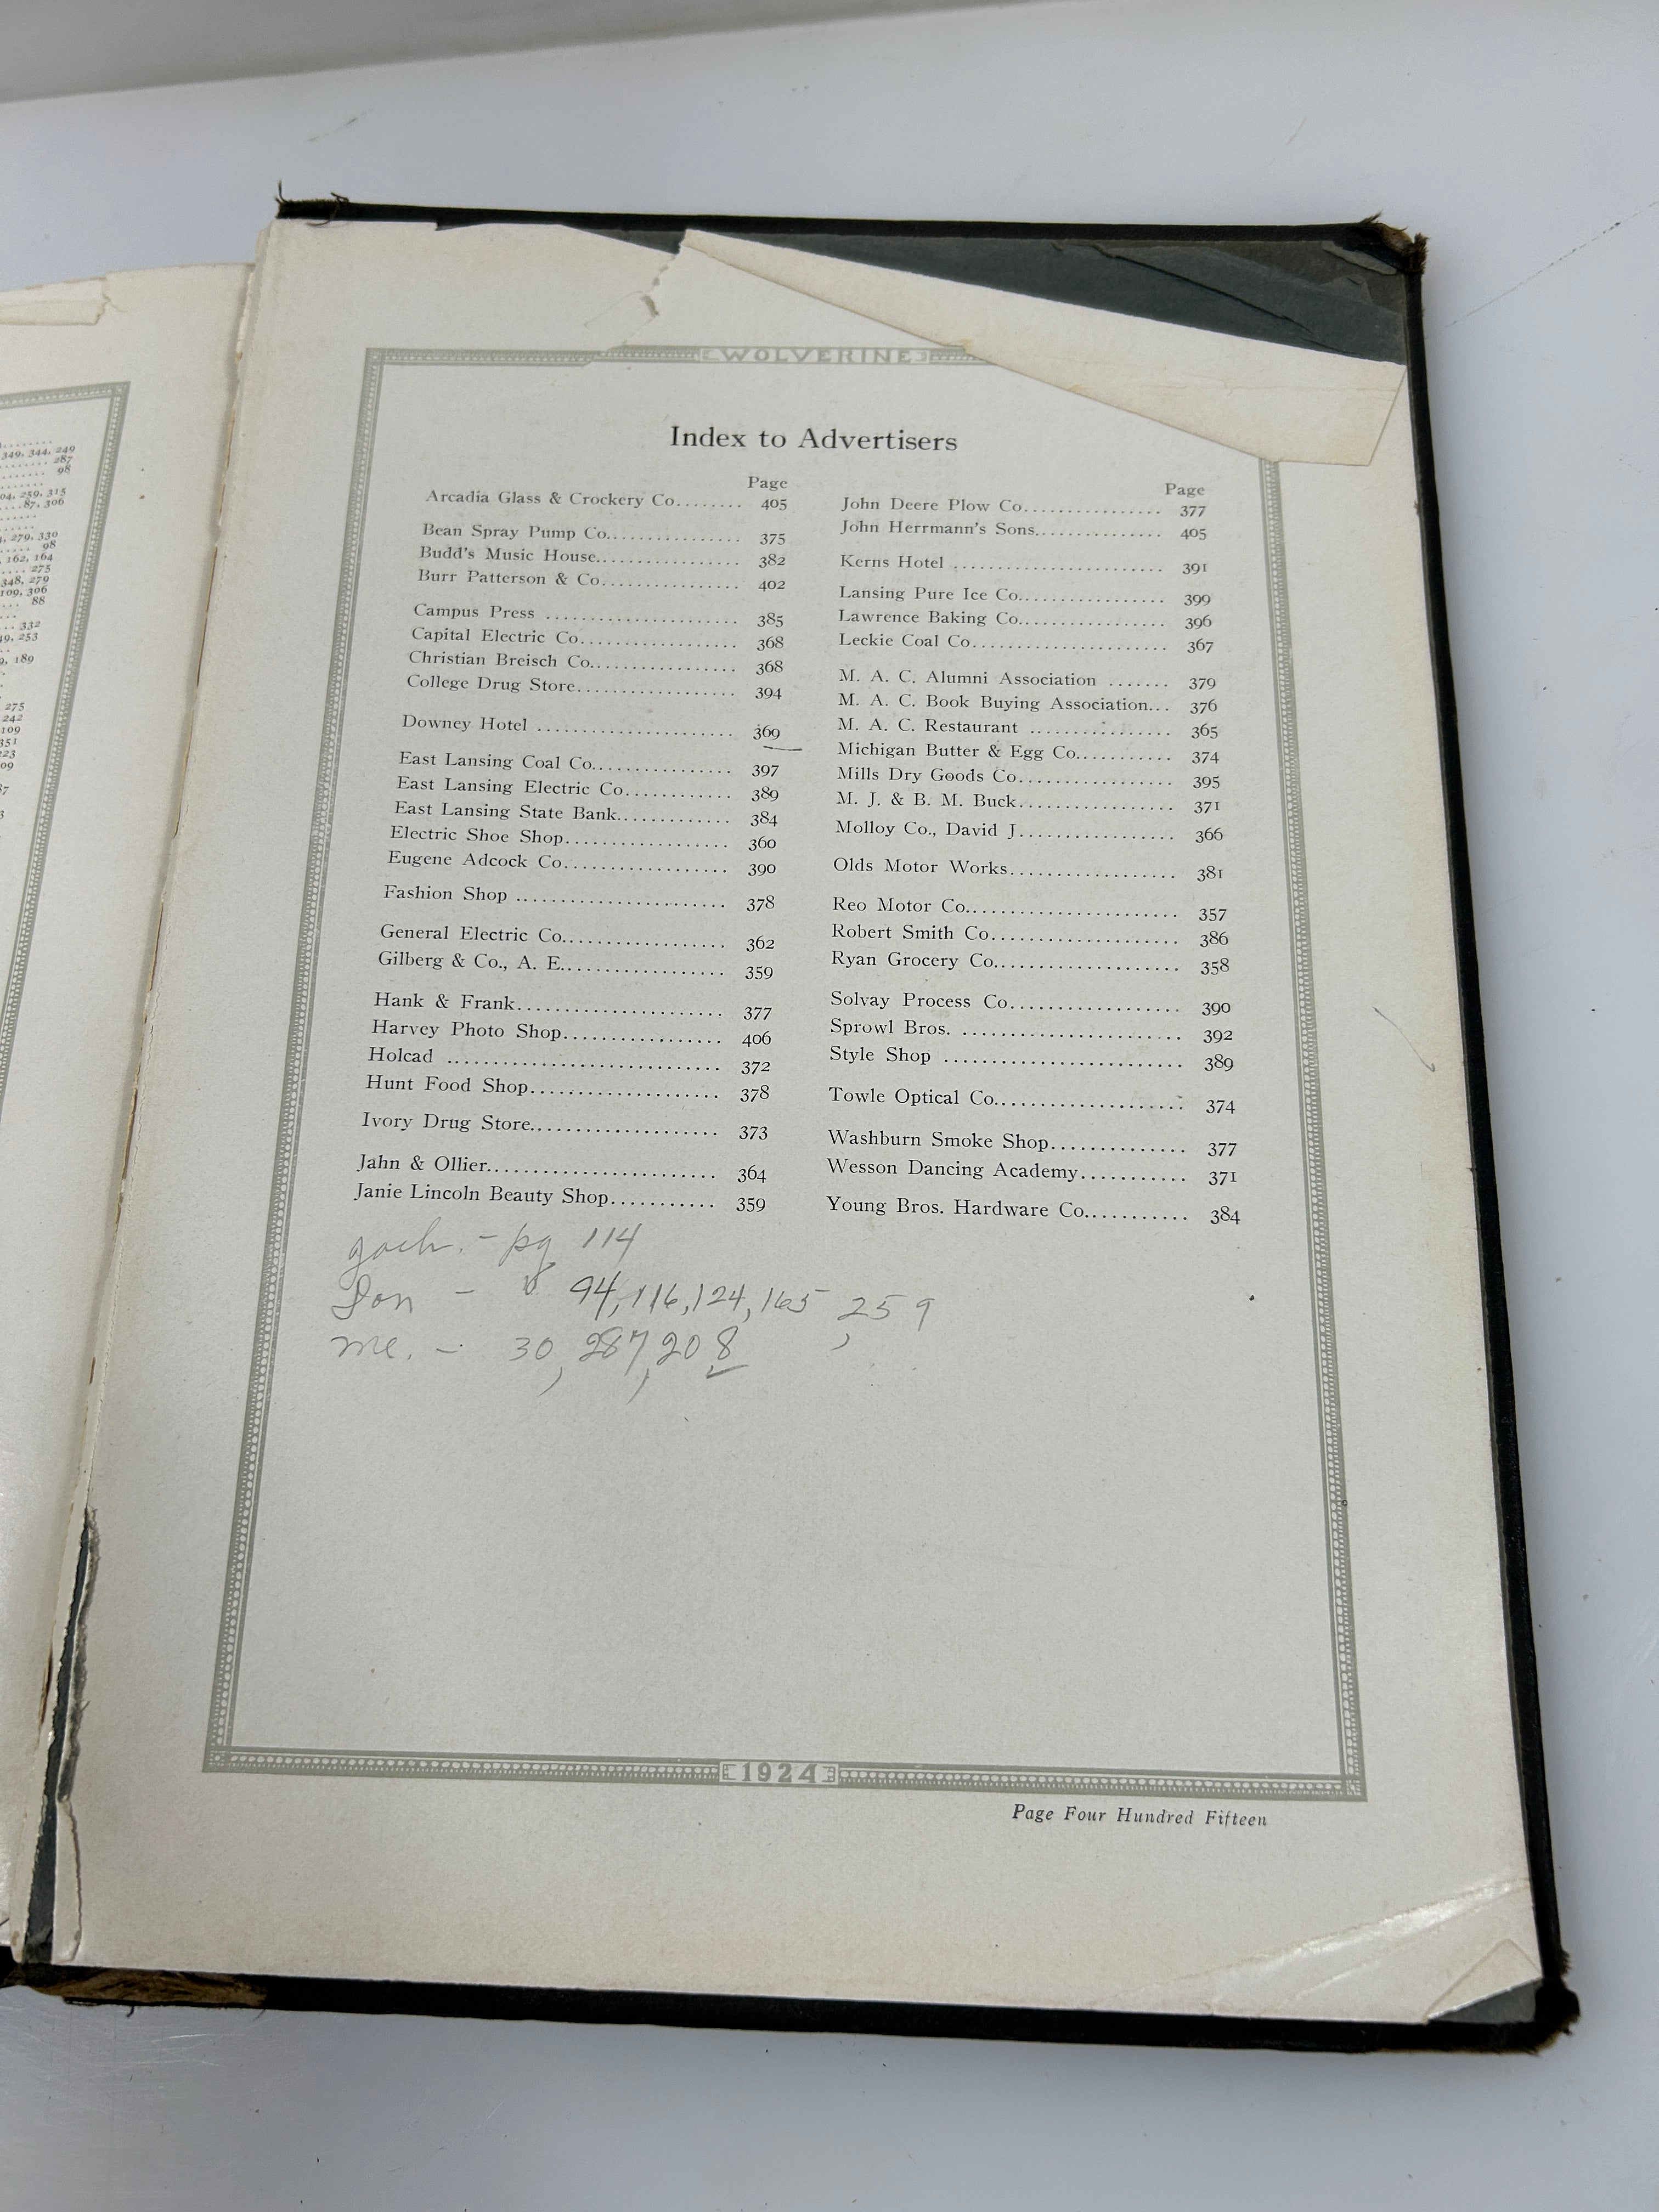 349, 344, 249
287
98
04, 259, 315
87, 306
279, 330
98
162, 164
275
348, 279
109, 306
88
332
253
189
275
242
109
351
WOLVERINE
Index to Advertisers
Page
Arcadia Glass & Crockery Co........ 405
Bean Spray Pump Co................. 375
Budd's Music House.................. 382
Burr Patterson & Co.................. 402
Campus Press ........................ 385
Capital Electric Co.................... 368
Christian Breisch Co.................. 368
College Drug Store.................... 394
Downey Hotel ........................ 369
East Lansing Coal Co................. 397
East Lansing Electric Co............. 389
East Lansing State Bank.............. 384
Electric Shoe Shop.................... 360
Eugene Adcock Co..................... 390
Fashion Shop ......................... 378
General Electric Co................... 362
Gilberg & Co., A. E................... 359
Hank & Frank......................... 377
Harvey Photo Shop.................... 406
Holcad ............................... 372
Hunt Food Shop...................... 378
Ivory Drug Store...................... 373
Jahn & Ollier.......................... 364
Janie Lincoln Beauty Shop........... 359
Page
John Deere Plow Co................ 377
John Herrmann's Sons.............. 405
Kerns Hotel ........................ 391
Lansing Pure Ice Co................ 399
Lawrence Baking Co................ 396
Leckie Coal Co...................... 367
M. A. C. Alumni Association ....... 379
M. A. C. Book Buying Association... 376
M. A. C. Restaurant ................ 365
Michigan Butter & Egg Co........... 374
Mills Dry Goods Co.................. 395
M. J. & B. M. Buck.................. 371
Molloy Co., David J.................. 366
Olds Motor Works................... 381
Reo Motor Co........................ 357
Robert Smith Co..................... 386
Ryan Grocery Co..................... 358
Solvay Process Co................... 390
Sprowl Bros. ........................ 392
Style Shop .......................... 389
Towle Optical Co..................... 374
Washburn Smoke Shop............... 377
Wesson Dancing Academy............ 371
Young Bros. Hardware Co............ 384
- pg 114
Don - 94, 116, 124, 165, 259
me. - 30, 287, 208
1924
Page Four Hundred Fifteen